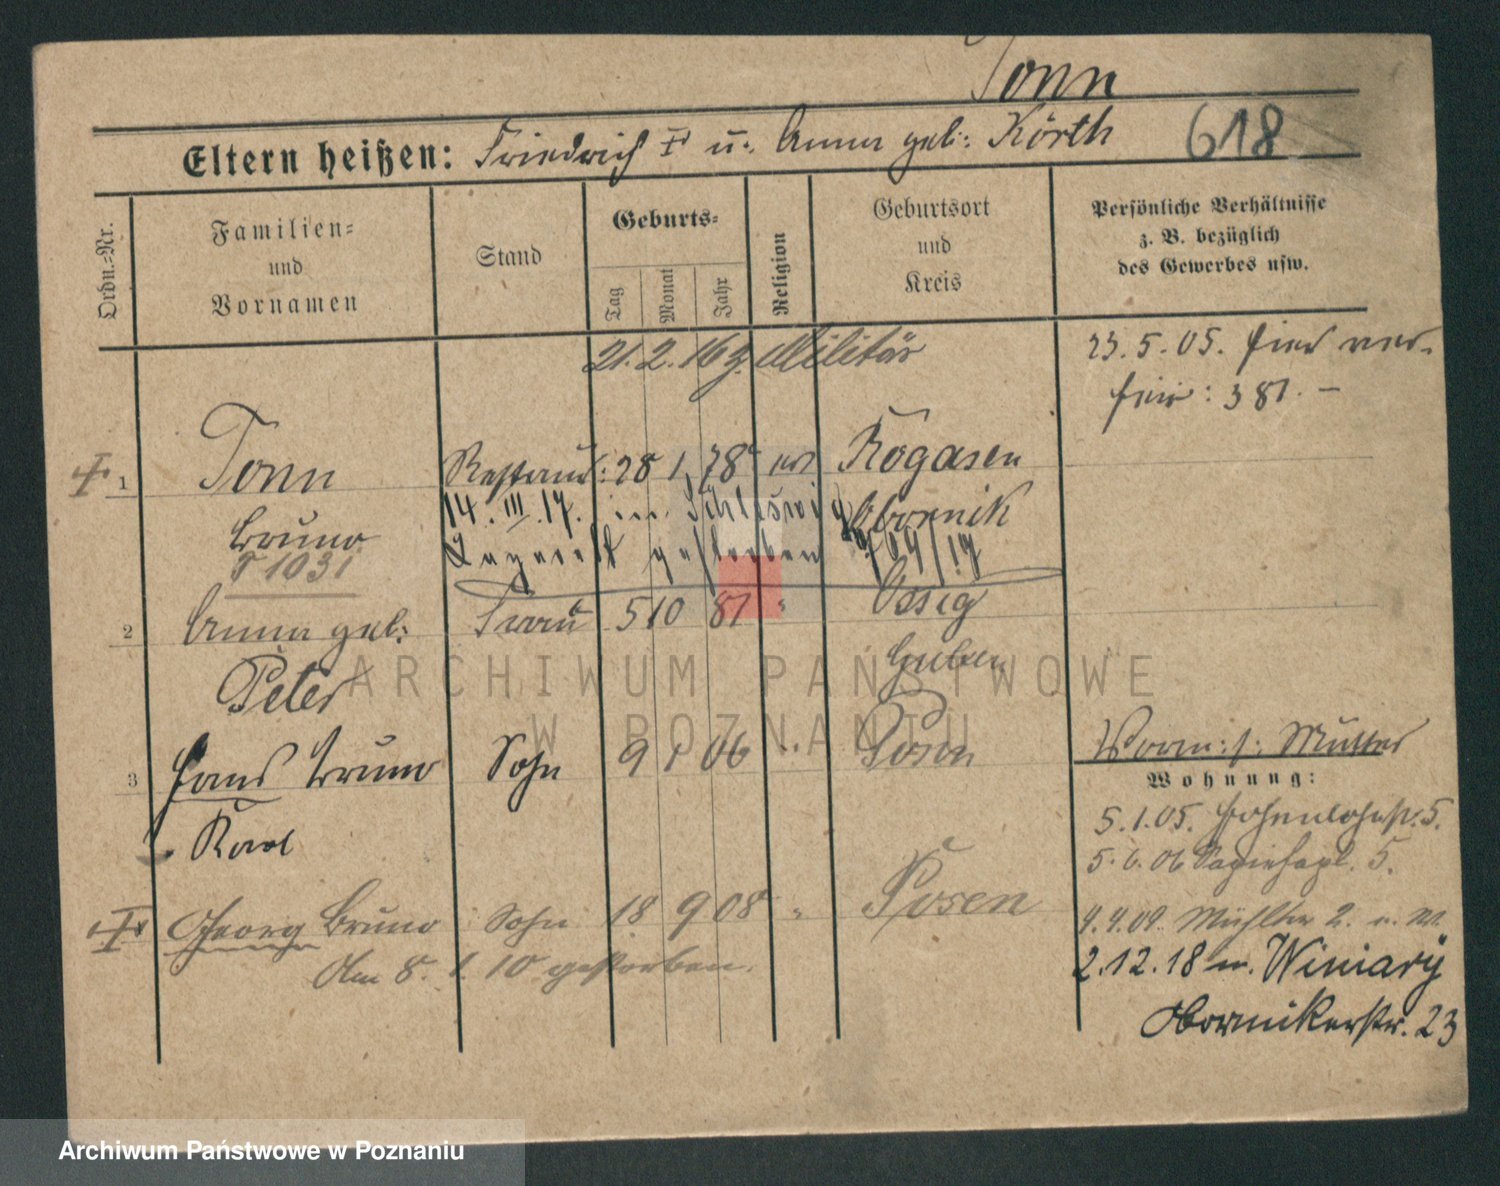 Tonn
Eltern heißen: Friedrich u. Anna geb. Körth 618
Ordn.-Nr.
Familien-
und
Vornamen
Stand
Geburts-
Tag
Monat
Jahr
Religion
Geburtsort
und
Kreis
Persönliche Verhältnisse
z. B. bezüglich
des Gewerbes usw.
21.2.16 z. Militär
23.5.05. hier
381.-
1 Tonn Restaur: 28 1 78 Rogasen
Bruno 14.III.17. in Schleswig Obornik
gestorben /04/17
1031
2 Anna geb: Frau 5 10 81 " Ossig
Peter Guben
3 Hans Bruno Sohn 9 1 06 " Posen
Karl
Vorm: s: Mutter
Wohnung:
5.1.05. Hohenlohestr. 5.
5.6.06 Sapiehapl. 5.
Georg Bruno Sohn 18 9 08 " Posen
Am 8. 1. 10 gestorben.
4.4.09. Mühlstr 2.
2.12.18 n. Winiary
Obornikerstr. 23
ARCHIWUM PAŃSTWOWE
W POZNANIU
Archiwum Państwowe w Poznaniu